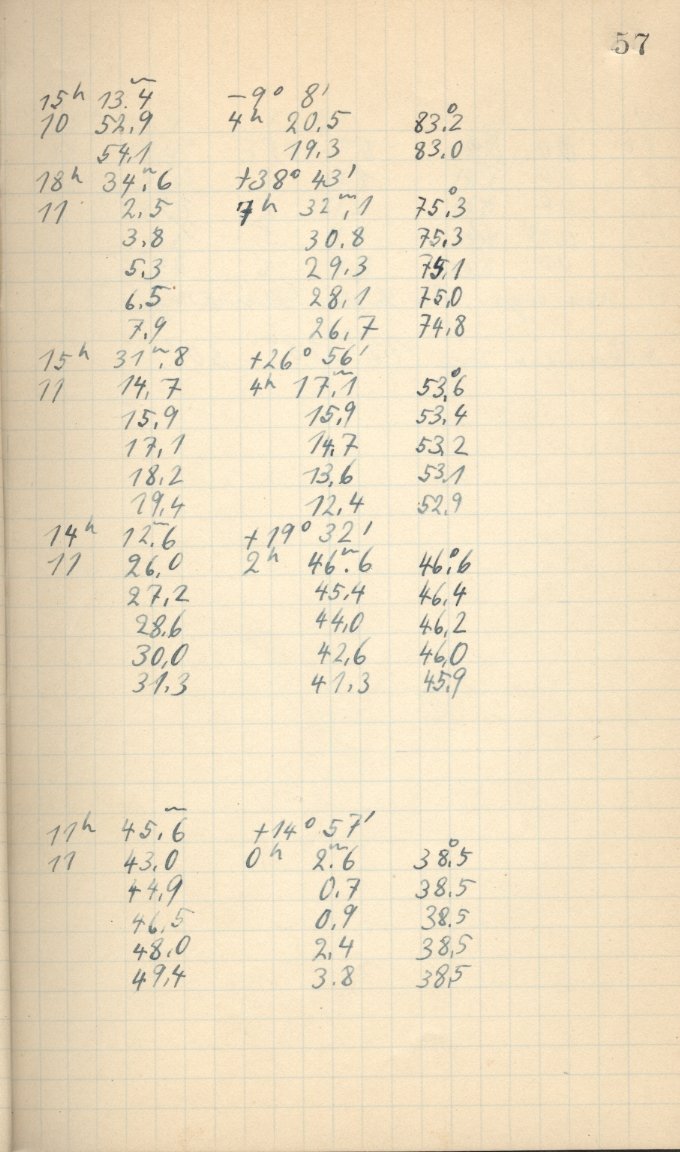 57
15h 13.m4 -9° 8'
10 52,9 4h 20,5 83.°2
54,1 19,3 83,0
18h 34.m6 +38° 43'
11 2,5 7h 32m,1 75.°3
3,8 30,8 75,3
5,3 29,3 75,1
6,5 28,1 75,0
7,9 26,7 74,8
15h 31m,8 +26° 56'
11 14,7 4h 17m,1 53,°6
15,9 15,9 53,4
17,1 14,7 53,2
18,2 13,6 53,1
19,4 12,4 52,9
14h 12m,6 +19° 32'
11 26,0 2h 46.m6 46.°6
27,2 45,4 46,4
28,6 44,0 46,2
30,0 42,6 46,0
31,3 41,3 45,9
11h 45m,6 +14° 57'
11 43,0 0h 2.m6 38.°5
44,9 0,7 38,5
46,5 0,9 38,5
48,0 2,4 38,5
49,4 3,8 38,5